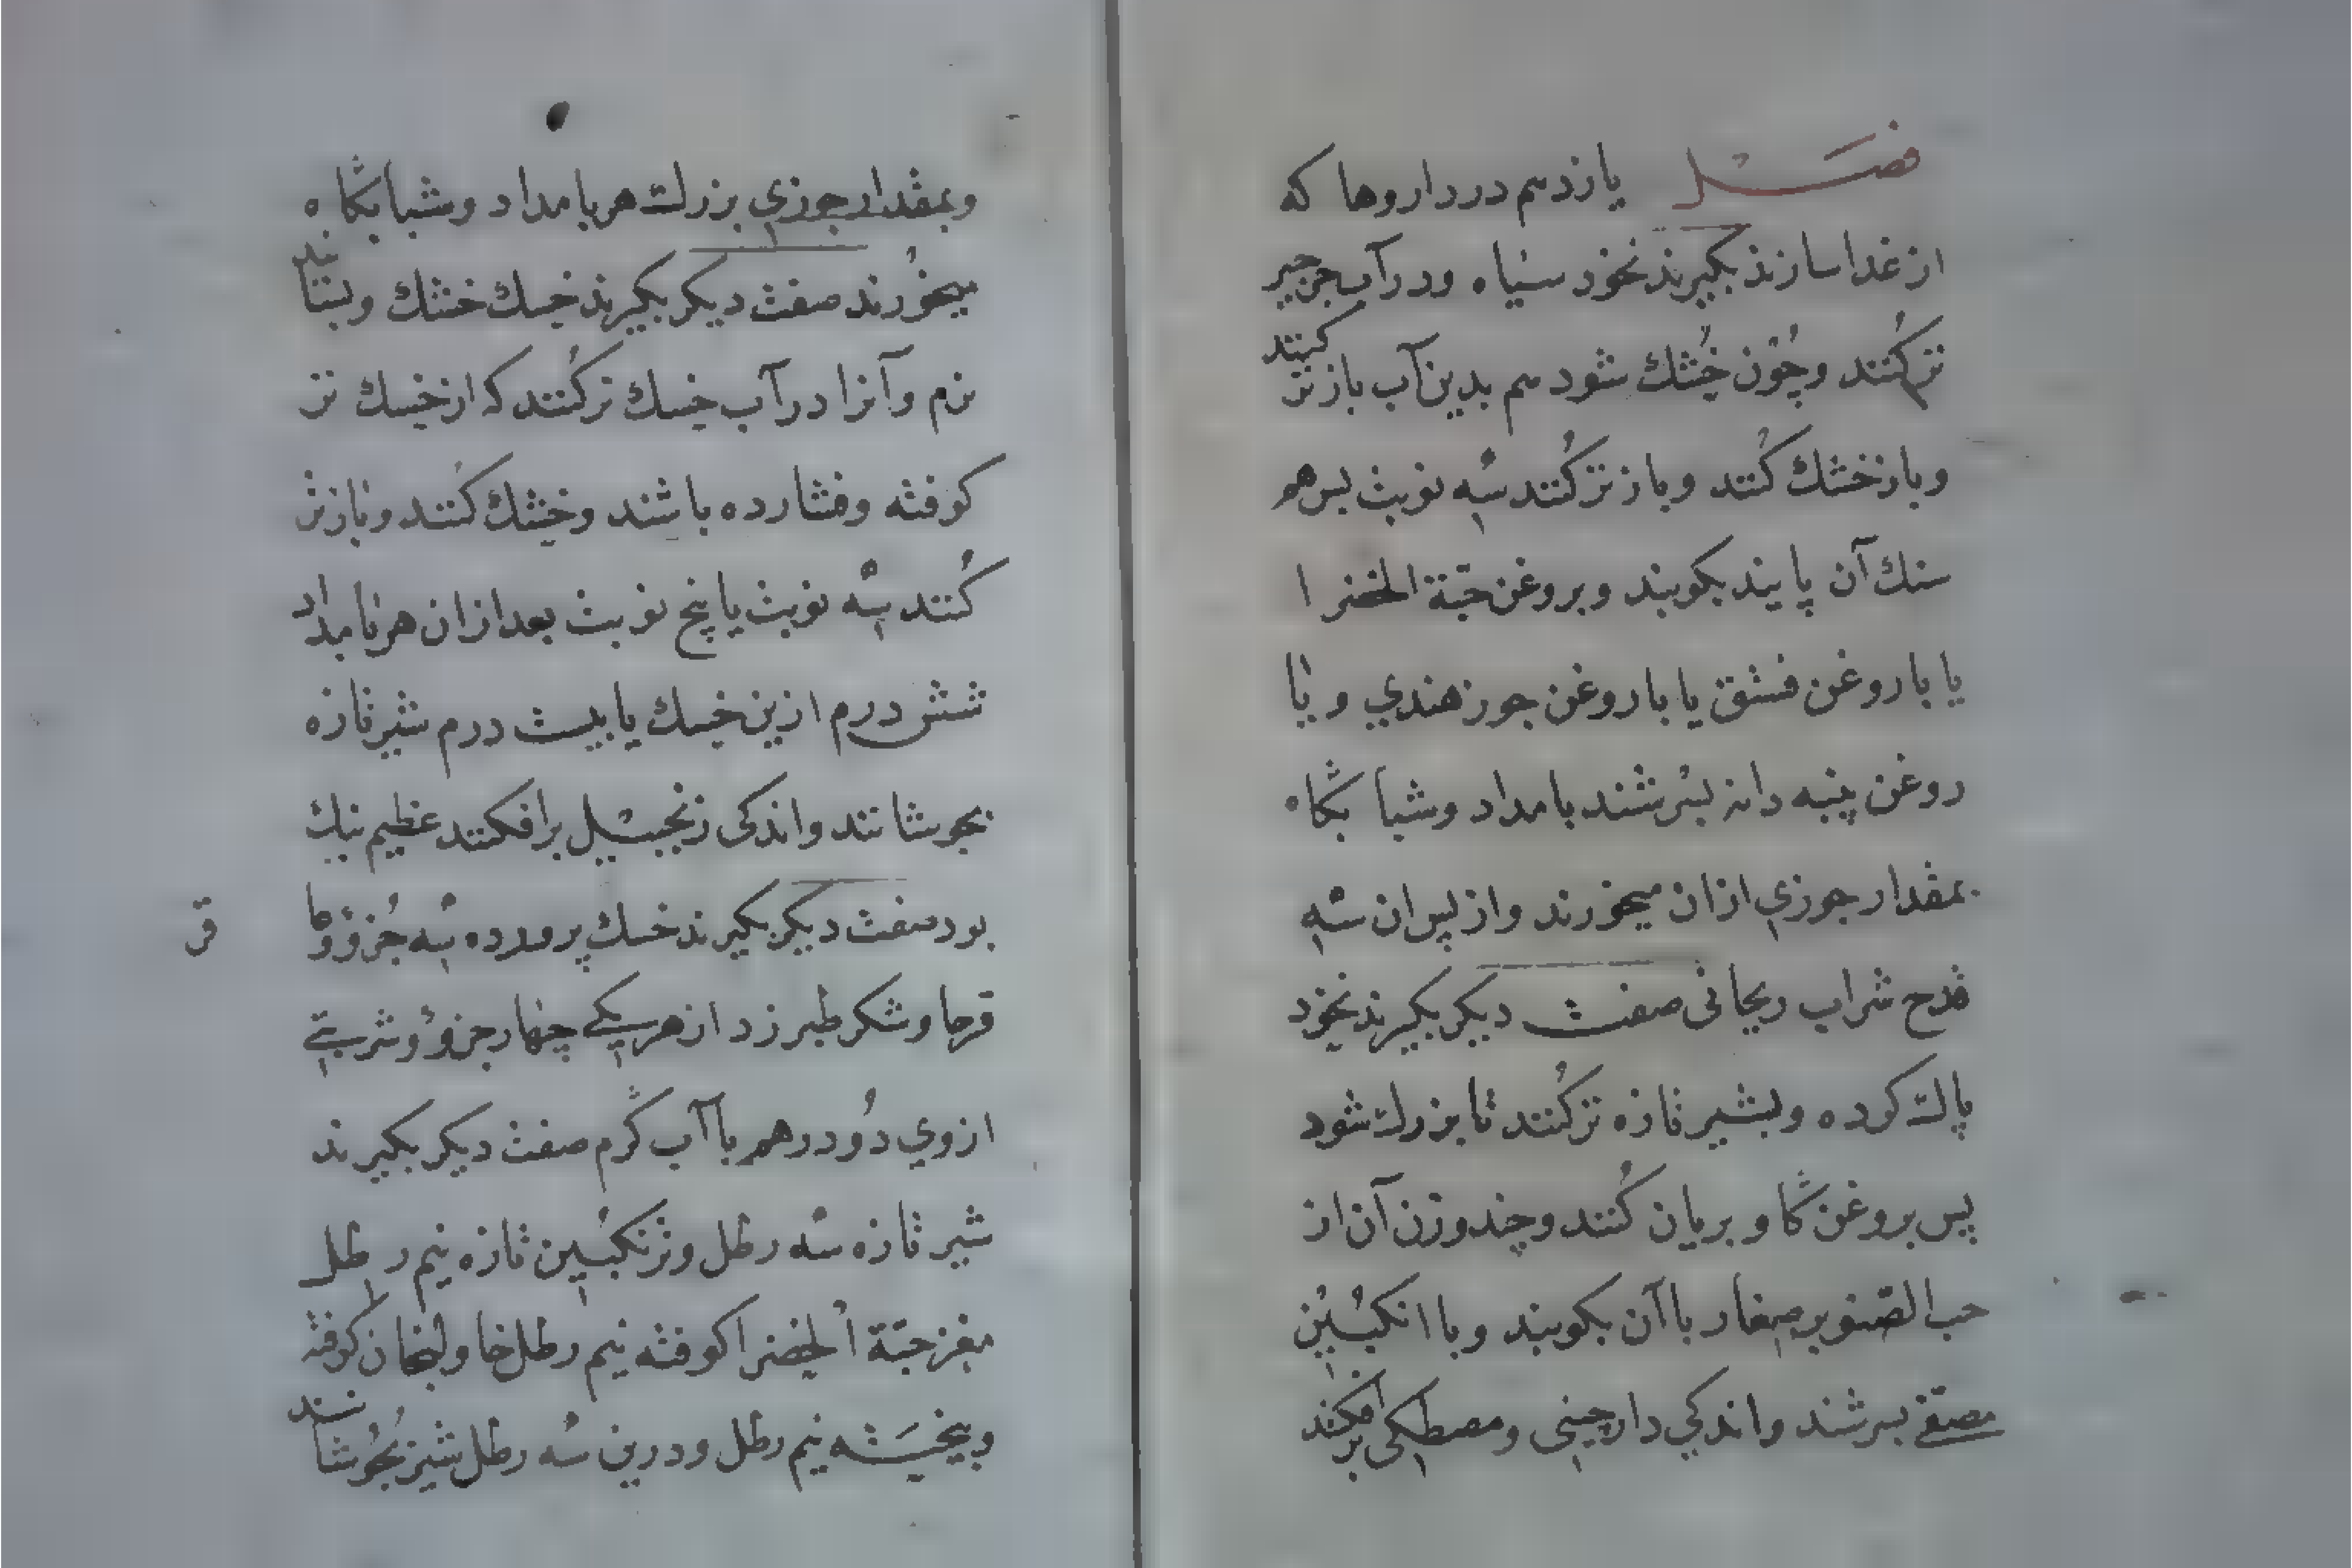 فصل یازدهم در داروها که
از غذا سازند بکیرند نخود سیاه ودر آب جرجیر
تر کنند وچون خشك شود هم بدین آب باز تر کنند
وباز خشك کنند وباز تر کنند سه نوبت پس هم
سنك آن پایند بکوبند وبروغن حبّة الخضرا
یا با روغن فستق یا با روغن جوز هندي ویا
روغن پنبه دانه بسرشند بامداد وشبانکاه
بمقدار جوزي ازان میخورند واز پس ان سه
قدح شراب ریحانی صفت دیکر بکیرند نخود
پاك کرده وبشیر تازه تر کنند تا بزرك شود
پس بروغن کاو بریان کنند وچند وزن آن از
حب الصّنوبر صغار با آن بکوبند وبا انکبین
مصفّی بسرشند واندکي دارچینی ومصطکی برافکنند
وبمقدار جوزي بزرك هر بامداد وشبانکاه
میخورند صفت دیکر بکیرند خسك خشك وبسایند
نرم وآنرا در آب خسك تر کنند که از خسك تر
کوفته وفشارده باشند وخشك کنند وباز تر
کنند سه نوبت یا پنج نوبت بعد ازان هر بامداد
شش درم ازین خسك یا بیست درم شیر تازه
بجوشانند واندکی زنجبیل برافکنند عظیم نیك
بود صفت دیکر بکیرند خسك پرورده سه جزؤ وعا
قر
قرحا وشکر طبرزد از هر یکے چهار جزؤ وشربتے
ازوي دو درهم با آب کرم صفت دیکر بکیرند
شیر تازه سه رطل وترنکبین تازه نیم رطل
مغز حبّة الخضرا کوفته نیم رطل خاولنجان کوفته
وبیخته نیم رطل ودرین سه رطل شیر بجوشانند